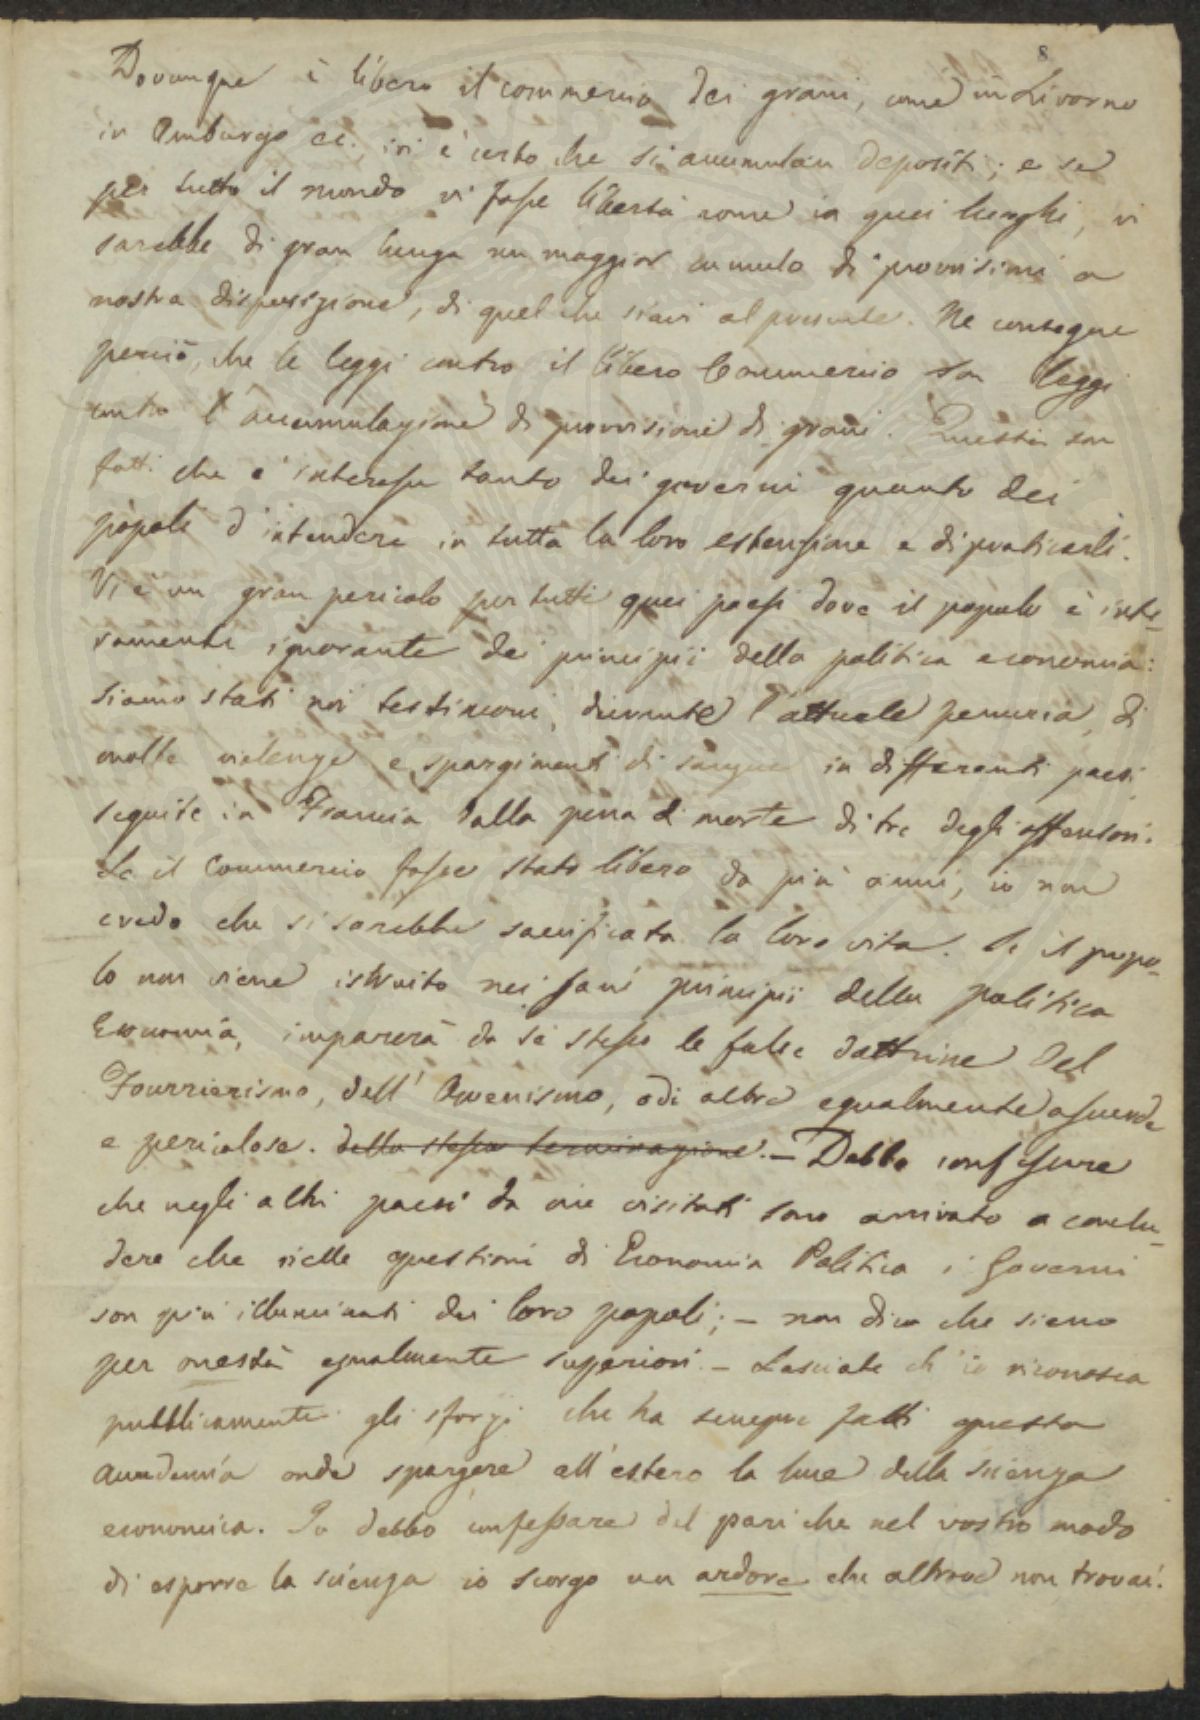 8
Dovunque è libero il commercio dei grani, come in Livorno
in Amburgo ec. ivi è certo che si accumulan depositi; e se
per tutto il mondo vi fosse libertà come in quei luoghi, vi
sarebbe di gran lunga un maggior cumulo di provvisioni a
nostra disposizione, di quel che siavi al presente. Ne consegue
perciò, che le leggi contro il libero Commercio son leggi
contro l'accumulazione di provvisioni di grani. Questi son
fatti che è interesse tanto dei governi quanto dei
popoli d'intendere in tutta la loro estensione e di praticarli.
Vi è un gran pericolo per tutti quei paesi dove il popolo è inte-
ramente ignorante dei principii della politica economia:
siamo stati noi testimoni, durante l'attuale penuria, di
molte violenze e spargimenti di sangue in differenti paesi
seguite in Francia dalla pena di morte di tre degli offensori.
Se il Commercio fosse stato libero da più anni, io non
credo che si sarebbe sacrificata la loro vita. Se il popo-
lo non viene istruito nei sani principii della politica
Economia, imparerà da se stesso le false dottrine del
Fourrierismo, dell'Owenismo, o di altre egualmente assurde
e pericolose. della stessa terminazione. — Debbo confessare
che negli altri paesi da me visitati sono arrivato a conclu-
dere che nelle questioni di Economia Politica i Governi
son più illuminati dei loro popoli; — non dico che sieno
per onestà egualmente superiori. — Lasciate ch'io riconosca
pubblicamente gli sforzi che ha sempre fatti questa
Accademia onde spargere all'estero la luce della scienza
economica. Io debbo confessare del pari che nel vostro modo
di esporre la scienza io scorgo un ardore che altrove non trovai.